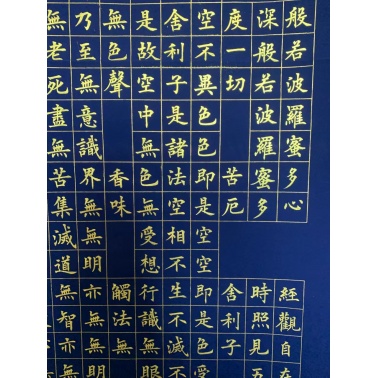 般若波羅蜜多心
經觀自在
深般若波羅蜜多
時照見五
度一切
苦厄
舍利子
空不異色色即是空空即是色受
舍利子是諸法空相不生不滅不
是故空中無色無受想行識無眼
無色聲
香味
觸法無
乃至無意識界無無明亦無無
無老死盡無苦集滅道無智亦